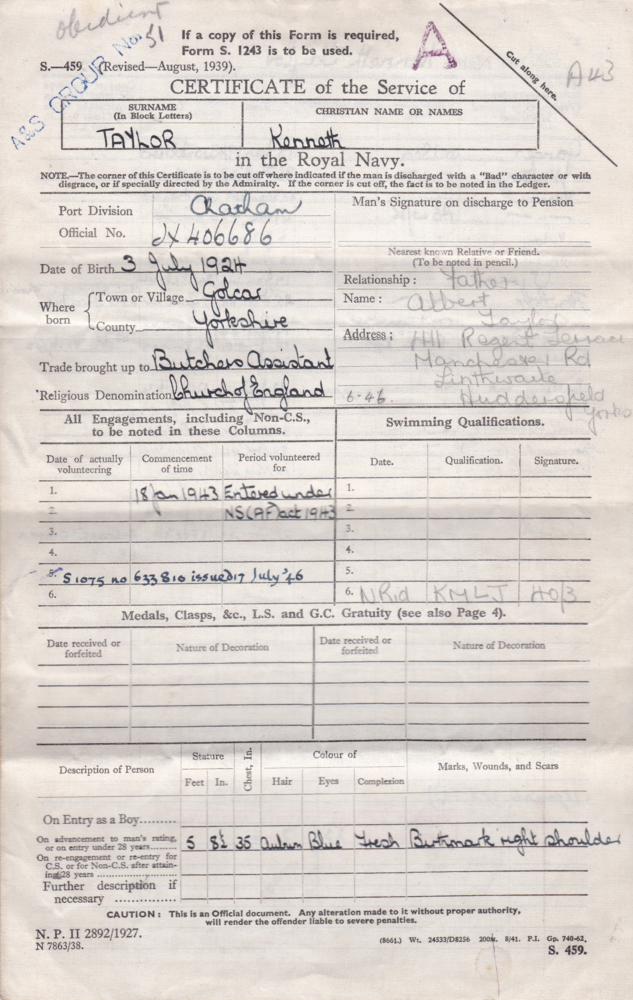 obedient
If a copy of this Form is required,
Form S. 1243 is to be used.
A
Cut along here.
A43
A&S GROUP No. 51
S.—459 (Revised—August, 1939).
CERTIFICATE of the Service of
SURNAME
(In Block Letters)
CHRISTIAN NAME OR NAMES
TAYLOR Kenneth
in the Royal Navy.
NOTE.—The corner of this Certificate is to be cut off where indicated if the man is discharged with a "Bad" character or with
disgrace, or if specially directed by the Admiralty. If the corner is cut off, the fact is to be noted in the Ledger.
Port Division Chatham
Official No. JX 406686
Date of Birth 3 July 1924
Where born
Town or Village Golcar
County Yorkshire
Trade brought up to Butchers Assistant
Religious Denomination Church of England
Man's Signature on discharge to Pension
Nearest known Relative or Friend.
(To be noted in pencil.)
Relationship: Father
Name: Albert
Taylor
Address: Regent Terrace
Manchester Rd
Linthwaite
6-46. Huddersfield
Yorks
All Engagements, including Non-C.S.,
to be noted in these Columns.
Swimming Qualifications.
Date of actually
volunteering
Commencement
of time
Period volunteered
for
Date. Qualification. Signature.
1. 18 Jan 1943 Entered under 1.
2. NS(AF) act 1943 2.
3. 3.
4. 4.
5. S 1075 no 633810 issued 17 July '46 5.
6. 6.
Medals, Clasps, &c., L.S. and G.C. Gratuity (see also Page 4).
Date received or
forfeited
Nature of Decoration
Date received or
forfeited
Nature of Decoration
Description of Person
Stature
Feet In.
Chest, In.
Colour of
Hair Eyes Complexion
Marks, Wounds, and Scars
On Entry as a Boy.........
On advancement to man's rating,
or on entry under 28 years........
5 8½ 35 Auburn Blue Fresh Birthmark right shoulder
On re-engagement or re-entry for
C.S. or for Non-C.S. after attain-
ing 28 years
Further description if
necessary
CAUTION: This is an Official document. Any alteration made to it without proper authority,
will render the offender liable to severe penalties.
N. P. II 2892/1927.
N 7863/38.
(8661.) Wt. 24533/D8256 200M. 8/41. P.I. Gp. 740-62.
S. 459.